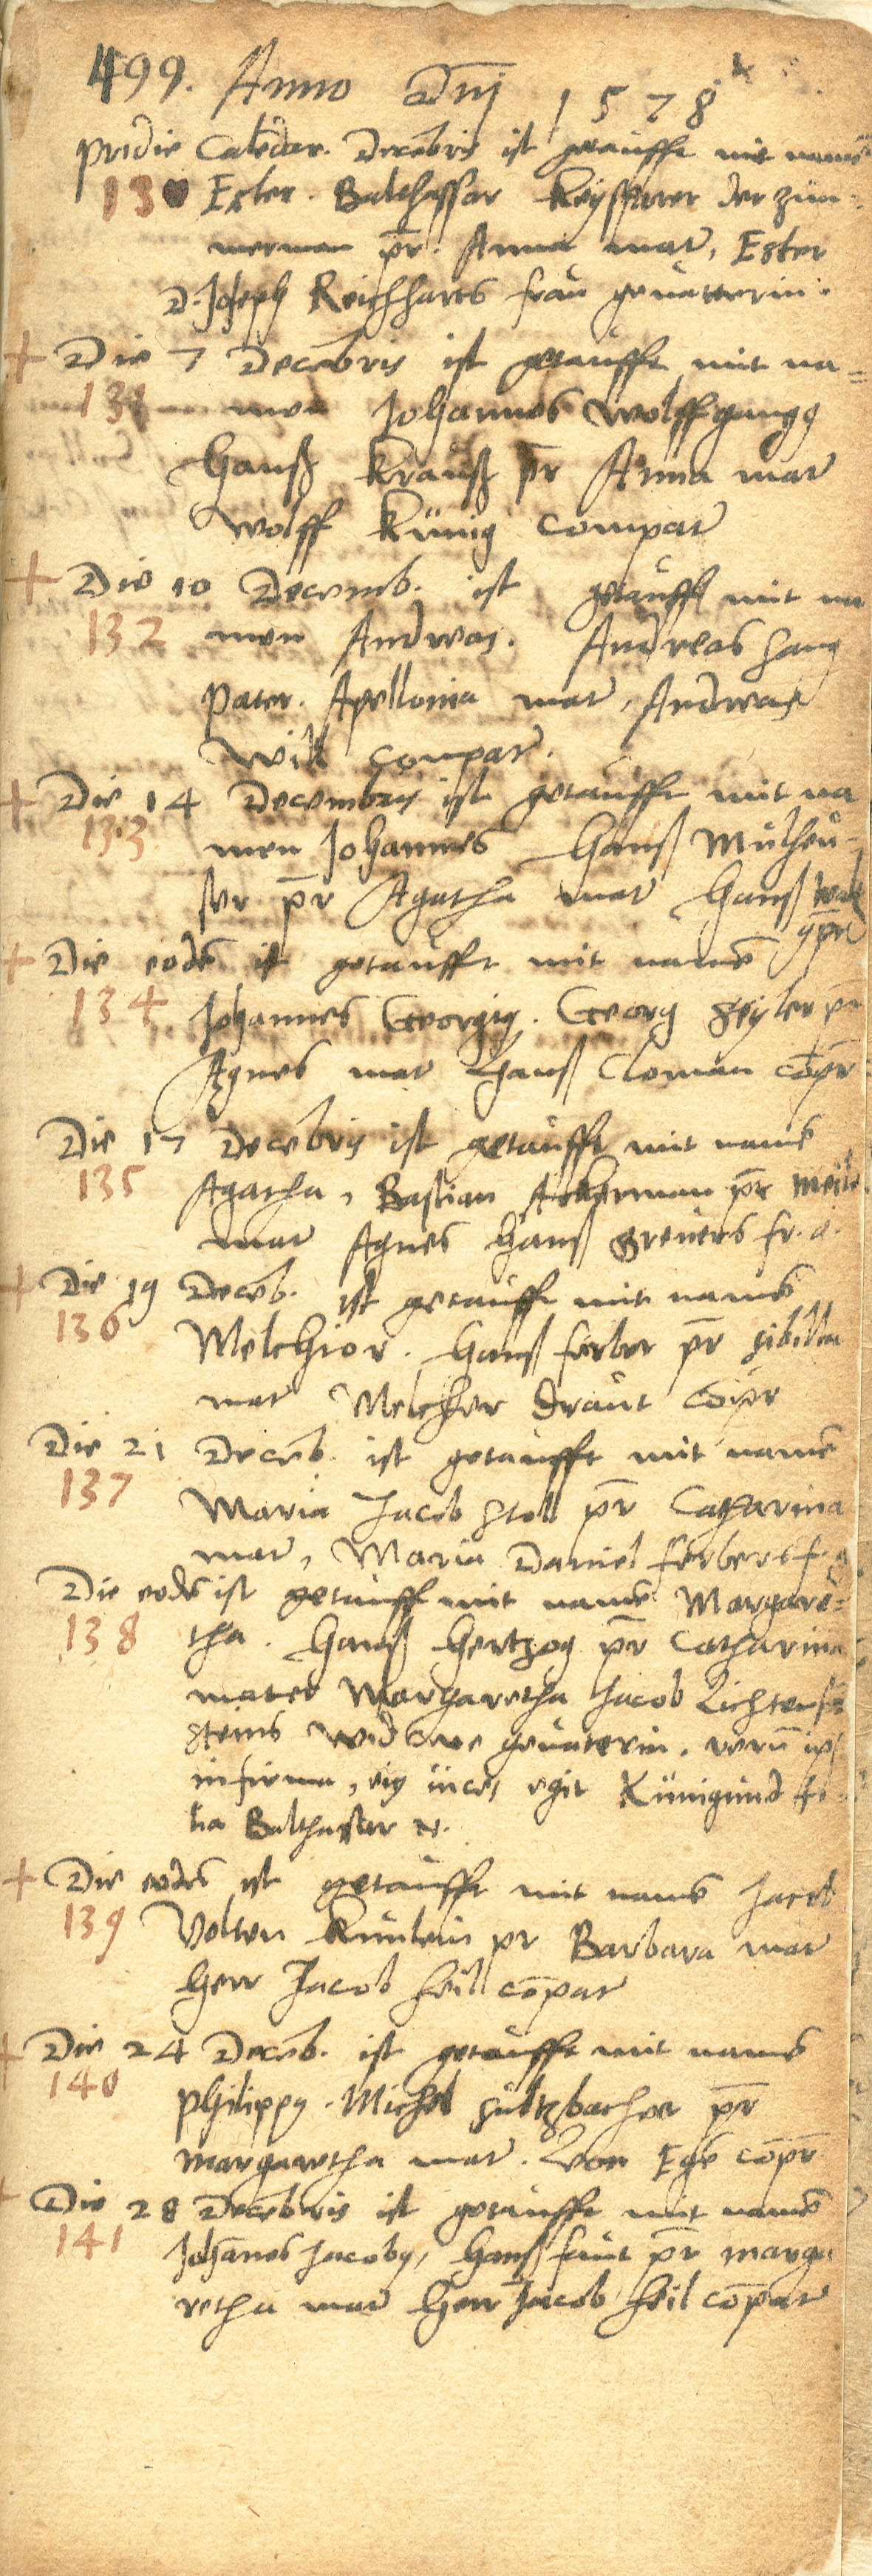 499. Anno dñj 1578
pridie Calēdar. Decēbris ist getaufft mit namē
130 Ester. Balthassar Keysserer der zim-
merman pr̄. Anna mat, Ester
D. Joseph Reichharts frau gevatterin.
+ Die 7 Decēbris ist getaufft mit na=
131 men Johannes Wolffgangg
Hanß Krauß pr̄ Anna mat
Wolff Künig compat
+ Die 10 Decemb. ist getaufft mit na
132 men Andreas. Andreas Haug
Pater. Apellonia mat, Andreas
Will compat.
+ Die 14 Decembris ist getaufft mit na
133 men Johannes Hanß Mütheu-
ser pr̄ Agatha mat Hanß
+ Die eodē ist getaufft mit namē
134 Johannes Georgig. Georg Seyler pr̄
Agnes mat Hanß Cloman cōpr
Die 17 Decēbris ist getaufft mit namē
135 Agatha, Bastian Ackerman pr̄
mat Agnes Hanß Greters fr. a.
+ Die 19 Decēb. ist getaufft mit namē
136 Melchior. Hanß ferber pr̄ Sibilla
mat Melcher Draut cōpr
Die 21 Decēb. ist getaufft mit namē
137 Maria Jacob Stoll pr̄ Catharina
mat, Maria Daniel ferbers f.
Die eodē ist getaufft mit namē Margare=
138 tha. Hanß Hertzog pr̄ Catharina
mater Margaretha Jacob Lichten
steins Widwe gevaterin. verū ips
infirma, eig vices egit Künigund fi-
lia Balthasser N.
+ Die eodē ist getaufft mit namē Jacob
139 Velten Künlein pr Barbara mat
Herr Jacob Heil cōpat
+ Die 24 Decēb. ist getaufft mit namē
140 Philippg. Michel Sültzbacher pr̄
Margaretha mat. Von Egē cōpr
Die 28 Decēbris ist getaufft mit namē
141 Johānes Jacobg, Hanß faut pr̄ marga
retha mat Herr Jacob Heil cōpat